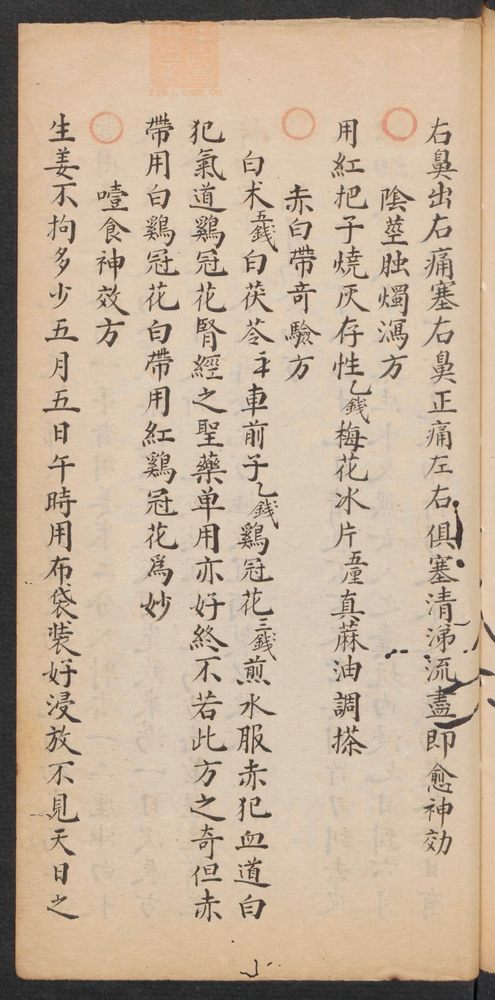 右鼻出右痛塞右鼻正痛左右俱塞清涕流盡即愈神効
陰莖䖳燭瀉方
用紅把子燒灰存性乙錢梅花冰片五厘真蔴油調搽
赤白帶奇驗方
白术五錢白茯苓車前子乙錢鷄冠花三錢煎水服赤犯血道白
犯氣道鷄冠花腎經之聖藥单用亦好終不若此方之奇但赤
帶用白鷄冠花白帶用紅鷄冠花為妙
噎食神效方
生姜不拘多少五月五日午時用布袋裝好浸放不見天日之